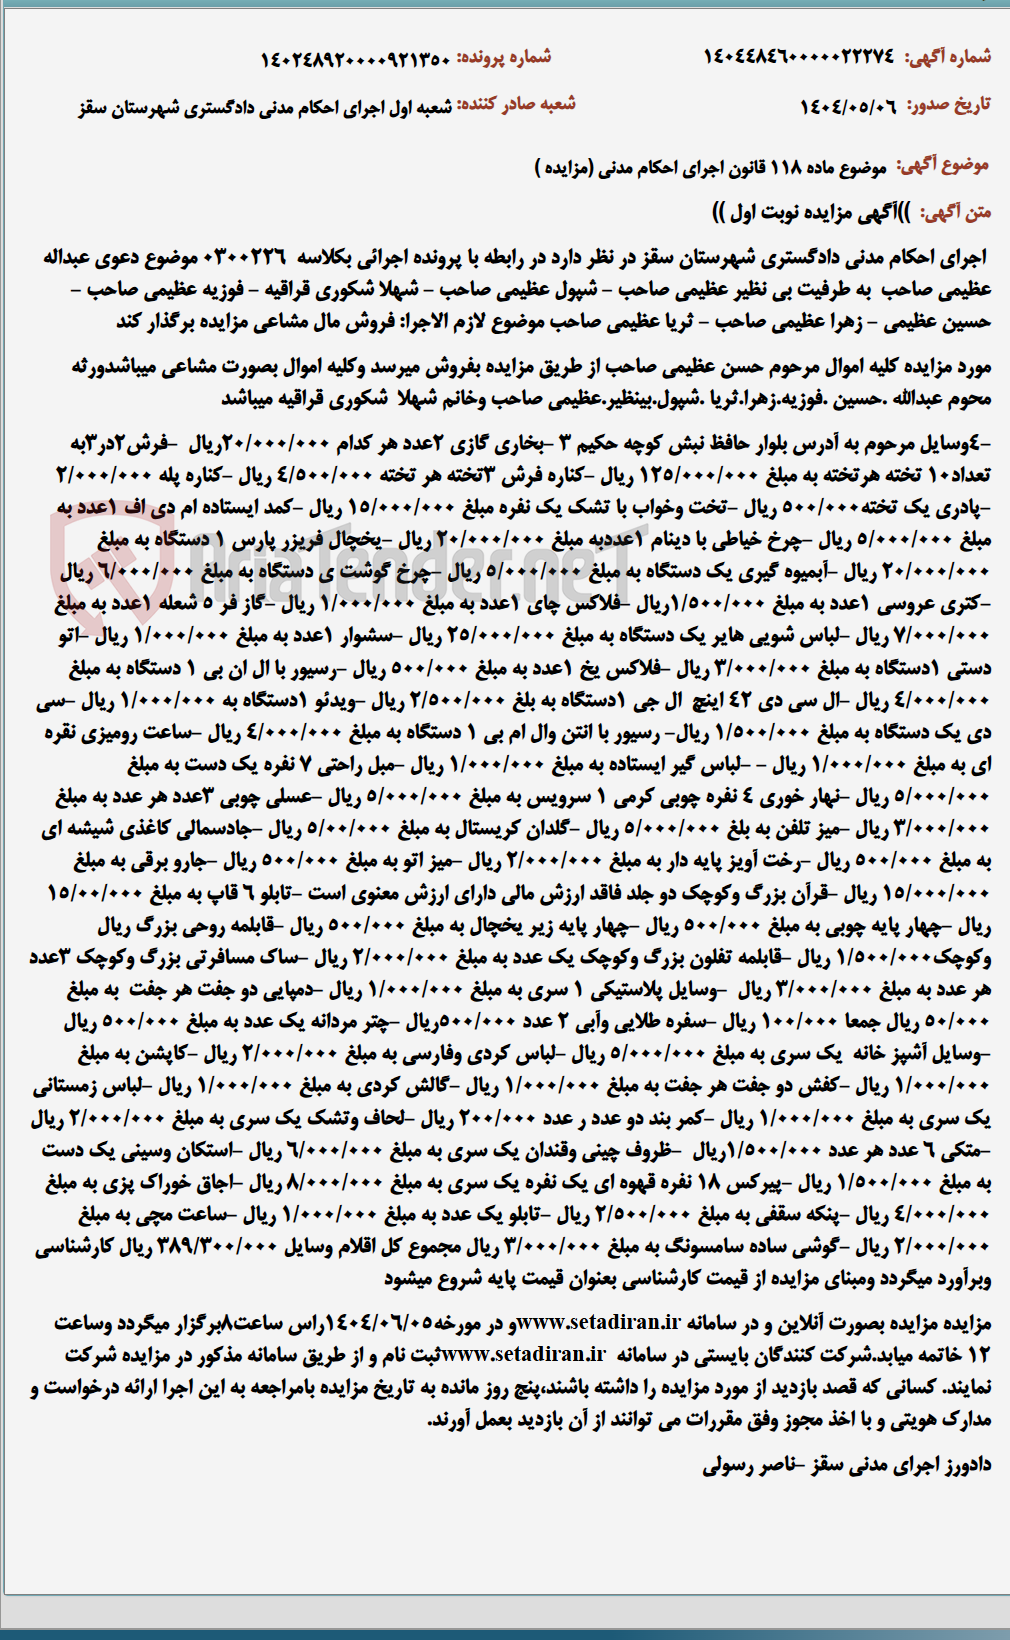 شماره آگهی: ۱۴۰۴۴۸۴۶۰۰۰۰۰۲۲۲۷۴ شماره پرونده: ۱۴۰۲۴۸۹۲۰۰۰۰۹۲۱۳۵۰
تاریخ صدور: ۱۴۰۴/۰۵/۰۶ شعبه صادر کننده: شعبه اول اجرای احکام مدنی دادگستری شهرستان سقز
موضوع آگهی: موضوع ماده ۱۱۸ قانون اجرای احکام مدنی (مزایده )
متن آگهی: ))آگهی مزایده نوبت اول ))
اجرای احکام مدنی دادگستری شهرستان سقز در نظر دارد در رابطه با پرونده اجرائی بکلاسه ۰۳۰۰۲۲۶ موضوع دعوی عبداله
عظیمی صاحب به طرفیت بی نظیر عظیمی صاحب – شپول عظیمی صاحب – شهلا شکوری قراقیه – فوزیه عظیمی صاحب –
حسین عظیمی – زهرا عظیمی صاحب – ثریا عظیمی صاحب موضوع لازم الاجرا: فروش مال مشاعی مزایده برگذار کند
مورد مزایده کلیه اموال مرحوم حسن عظیمی صاحب از طریق مزایده بفروش میرسد وکلیه اموال بصورت مشاعی میباشدورثه
محوم عبدالله .حسین .فوزیه.زهرا.ثریا .شپول.بینظیر.عظیمی صاحب وخانم شهلا شکوری قراقیه میباشد
–۴وسایل مرحوم به آدرس بلوار حافظ نبش کوچه حکیم ۳ –بخاری گازی ۲عدد هر کدام ۲۰/۰۰۰/۰۰۰ریال –فرش۲در۳به
تعداد۱۰ تخته هرتخته به مبلغ ۱۲۵/۰۰۰/۰۰۰ ریال –کناره فرش ۳تخته هر تخته ۴/۵۰۰/۰۰۰ ریال –کناره پله ۲/۰۰۰/۰۰۰
–پادری یک تخته۵۰۰/۰۰۰ ریال –تخت وخواب با تشک یک نفره مبلغ ۱۵/۰۰۰/۰۰۰ ریال –کمد ایستاده ام دی اف ۱عدد به
مبلغ ۵/۰۰۰/۰۰۰ ریال –چرخ خیاطی با دینام ۱عددبه مبلغ ۲۰/۰۰۰/۰۰۰ ریال –یخچال فریزر پارس ۱ دستگاه به مبلغ
۲۰/۰۰۰/۰۰۰ ریال –آبمیوه گیری یک دستگاه به مبلغ ۵/۰۰۰/۰۰۰ ریال –چرخ گوشت ی دستگاه به مبلغ ۶/۰۰۰/۰۰۰ ریال
–کتری عروسی ۱عدد به مبلغ ۱/۵۰۰/۰۰۰ریال –فلاکس چای ۱عدد به مبلغ ۱/۰۰۰/۰۰۰ ریال –گاز فر ۵ شعله ۱عدد به مبلغ
۷/۰۰۰/۰۰۰ ریال –لباس شویی هایر یک دستگاه به مبلغ ۲۵/۰۰۰/۰۰۰ ریال –سشوار ۱عدد به مبلغ ۱/۰۰۰/۰۰۰ ریال –اتو
دستی ۱دستگاه به مبلغ ۳/۰۰۰/۰۰۰ ریال –فلاکس یخ ۱عدد به مبلغ ۵۰۰/۰۰۰ ریال –رسیور با ال ان بی ۱ دستگاه به مبلغ
۴/۰۰۰/۰۰۰ ریال –ال سی دی ۴۲ اینچ ال جی ۱دستگاه به بلغ ۲/۵۰۰/۰۰۰ ریال –ویدئو ۱دستگاه به ۱/۰۰۰/۰۰۰ ریال –سی
دی یک دستگاه به مبلغ ۱/۵۰۰/۰۰۰ ریال– رسیور با انتن وال ام بی ۱ دستگاه به مبلغ ۴/۰۰۰/۰۰۰ ریال –ساعت رومیزی نقره
ای به مبلغ ۱/۰۰۰/۰۰۰ ریال – –لباس گیر ایستاده به مبلغ ۱/۰۰۰/۰۰۰ ریال –مبل راحتی ۷ نفره یک دست به مبلغ
۵/۰۰۰/۰۰۰ ریال –نهار خوری ۴ نفره چوبی کرمی ۱ سرویس به مبلغ ۵/۰۰۰/۰۰۰ ریال –عسلی چوبی ۳عدد هر عدد به مبلغ
۳/۰۰۰/۰۰۰ ریال –میز تلفن به بلغ ۵/۰۰۰/۰۰۰ ریال –گلدان کریستال به مبلغ ۵/۰۰/۰۰۰ ریال –جادسمالی کاغذی شیشه ای
به مبلغ ۵۰۰/۰۰۰ ریال –رخت آویز پایه دار به مبلغ ۲/۰۰۰/۰۰۰ ریال –میز اتو به مبلغ ۵۰۰/۰۰۰ ریال –جارو برقی به مبلغ
۱۵/۰۰۰/۰۰۰ ریال –قرآن بزرگ وکوچک دو جلد فاقد ارزش مالی دارای ارزش معنوی است –تابلو ۶ قاپ به مبلغ ۱۵/۰۰/۰۰۰
ریال –چهار پایه چوبی به مبلغ ۵۰۰/۰۰۰ ریال –چهار پایه زیر یخچال به مبلغ ۵۰۰/۰۰۰ ریال –قابلمه روحی بزرگ ریال
وکوچک۱/۵۰۰/۰۰۰ ریال –قابلمه تفلون بزرگ وکوچک یک عدد به مبلغ ۲/۰۰۰/۰۰۰ ریال –ساک مسافرتی بزرگ وکوچک ۳عدد
هر عدد به مبلغ ۳/۰۰۰/۰۰۰ ریال –وسایل پلاستیکی ۱ سری به مبلغ ۱/۰۰۰/۰۰۰ ریال –دمپایی دو جفت هر جفت به مبلغ
۵۰/۰۰۰ ریال جمعا ۱۰۰/۰۰۰ ریال –سفره طلایی وآبی ۲ عدد ۵۰۰/۰۰۰ریال –چتر مردانه یک عدد به مبلغ ۵۰۰/۰۰۰ ریال
–وسایل آشپز خانه یک سری به مبلغ ۵/۰۰۰/۰۰۰ ریال –لباس کردی وفارسی به مبلغ ۲/۰۰۰/۰۰۰ ریال –کاپشن به مبلغ
۱/۰۰۰/۰۰۰ ریال –کفش دو جفت هر جفت به مبلغ ۱/۰۰۰/۰۰۰ ریال –گالش کردی به مبلغ ۱/۰۰۰/۰۰۰ ریال –لباس زمستانی
یک سری به مبلغ ۱/۰۰۰/۰۰۰ ریال –کمر بند دو عدد ر عدد ۲۰۰/۰۰۰ ریال –لحاف وتشک یک سری به مبلغ ۲/۰۰۰/۰۰۰ ریال
–متکی ۶ عدد هر عدد ۱/۵۰۰/۰۰۰ریال –ظروف چینی وقندان یک سری به مبلغ ۶/۰۰۰/۰۰۰ ریال –استکان وسینی یک دست
به مبلغ ۱/۵۰۰/۰۰۰ ریال –پیرکس ۱۸ نفره قهوه ای یک نفره یک سری به مبلغ ۸/۰۰۰/۰۰۰ ریال –اجاق خوراک پزی به مبلغ
۴/۰۰۰/۰۰۰ ریال –پنکه سقفی به مبلغ ۲/۵۰۰/۰۰۰ ریال –تابلو یک عدد به مبلغ ۱/۰۰۰/۰۰۰ ریال –ساعت مچی به مبلغ
۲/۰۰۰/۰۰۰ ریال –گوشی ساده سامسونگ به مبلغ ۳/۰۰۰/۰۰۰ ریال مجموع کل اقلام وسایل ۳۸۹/۳۰۰/۰۰۰ ریال کارشناسی
وبرآورد میگردد ومبنای مزایده از قیمت کارشناسی بعنوان قیمت پایه شروع میشود
مزایده مزایده بصورت آنلاین و در سامانه www.setadiran.irو در مورخه۱۴۰۴/۰۶/۰۵راس ساعت۸برگزار میگردد وساعت
۱۲ خاتمه میابد.شرکت کنندگان بایستی در سامانه www.setadiran.irثبت نام و از طریق سامانه مذکور در مزایده شرکت
نمایند. کسانی که قصد بازدید از مورد مزایده را داشته باشند،پنج روز مانده به تاریخ مزایده بامراجعه به این اجرا ارائه درخواست و
مدارک هویتی و با اخذ مجوز وفق مقررات می توانند از آن بازدید بعمل آورند.
دادورز اجرای مدنی سقز –ناصر رسولی
AriaTender.neT